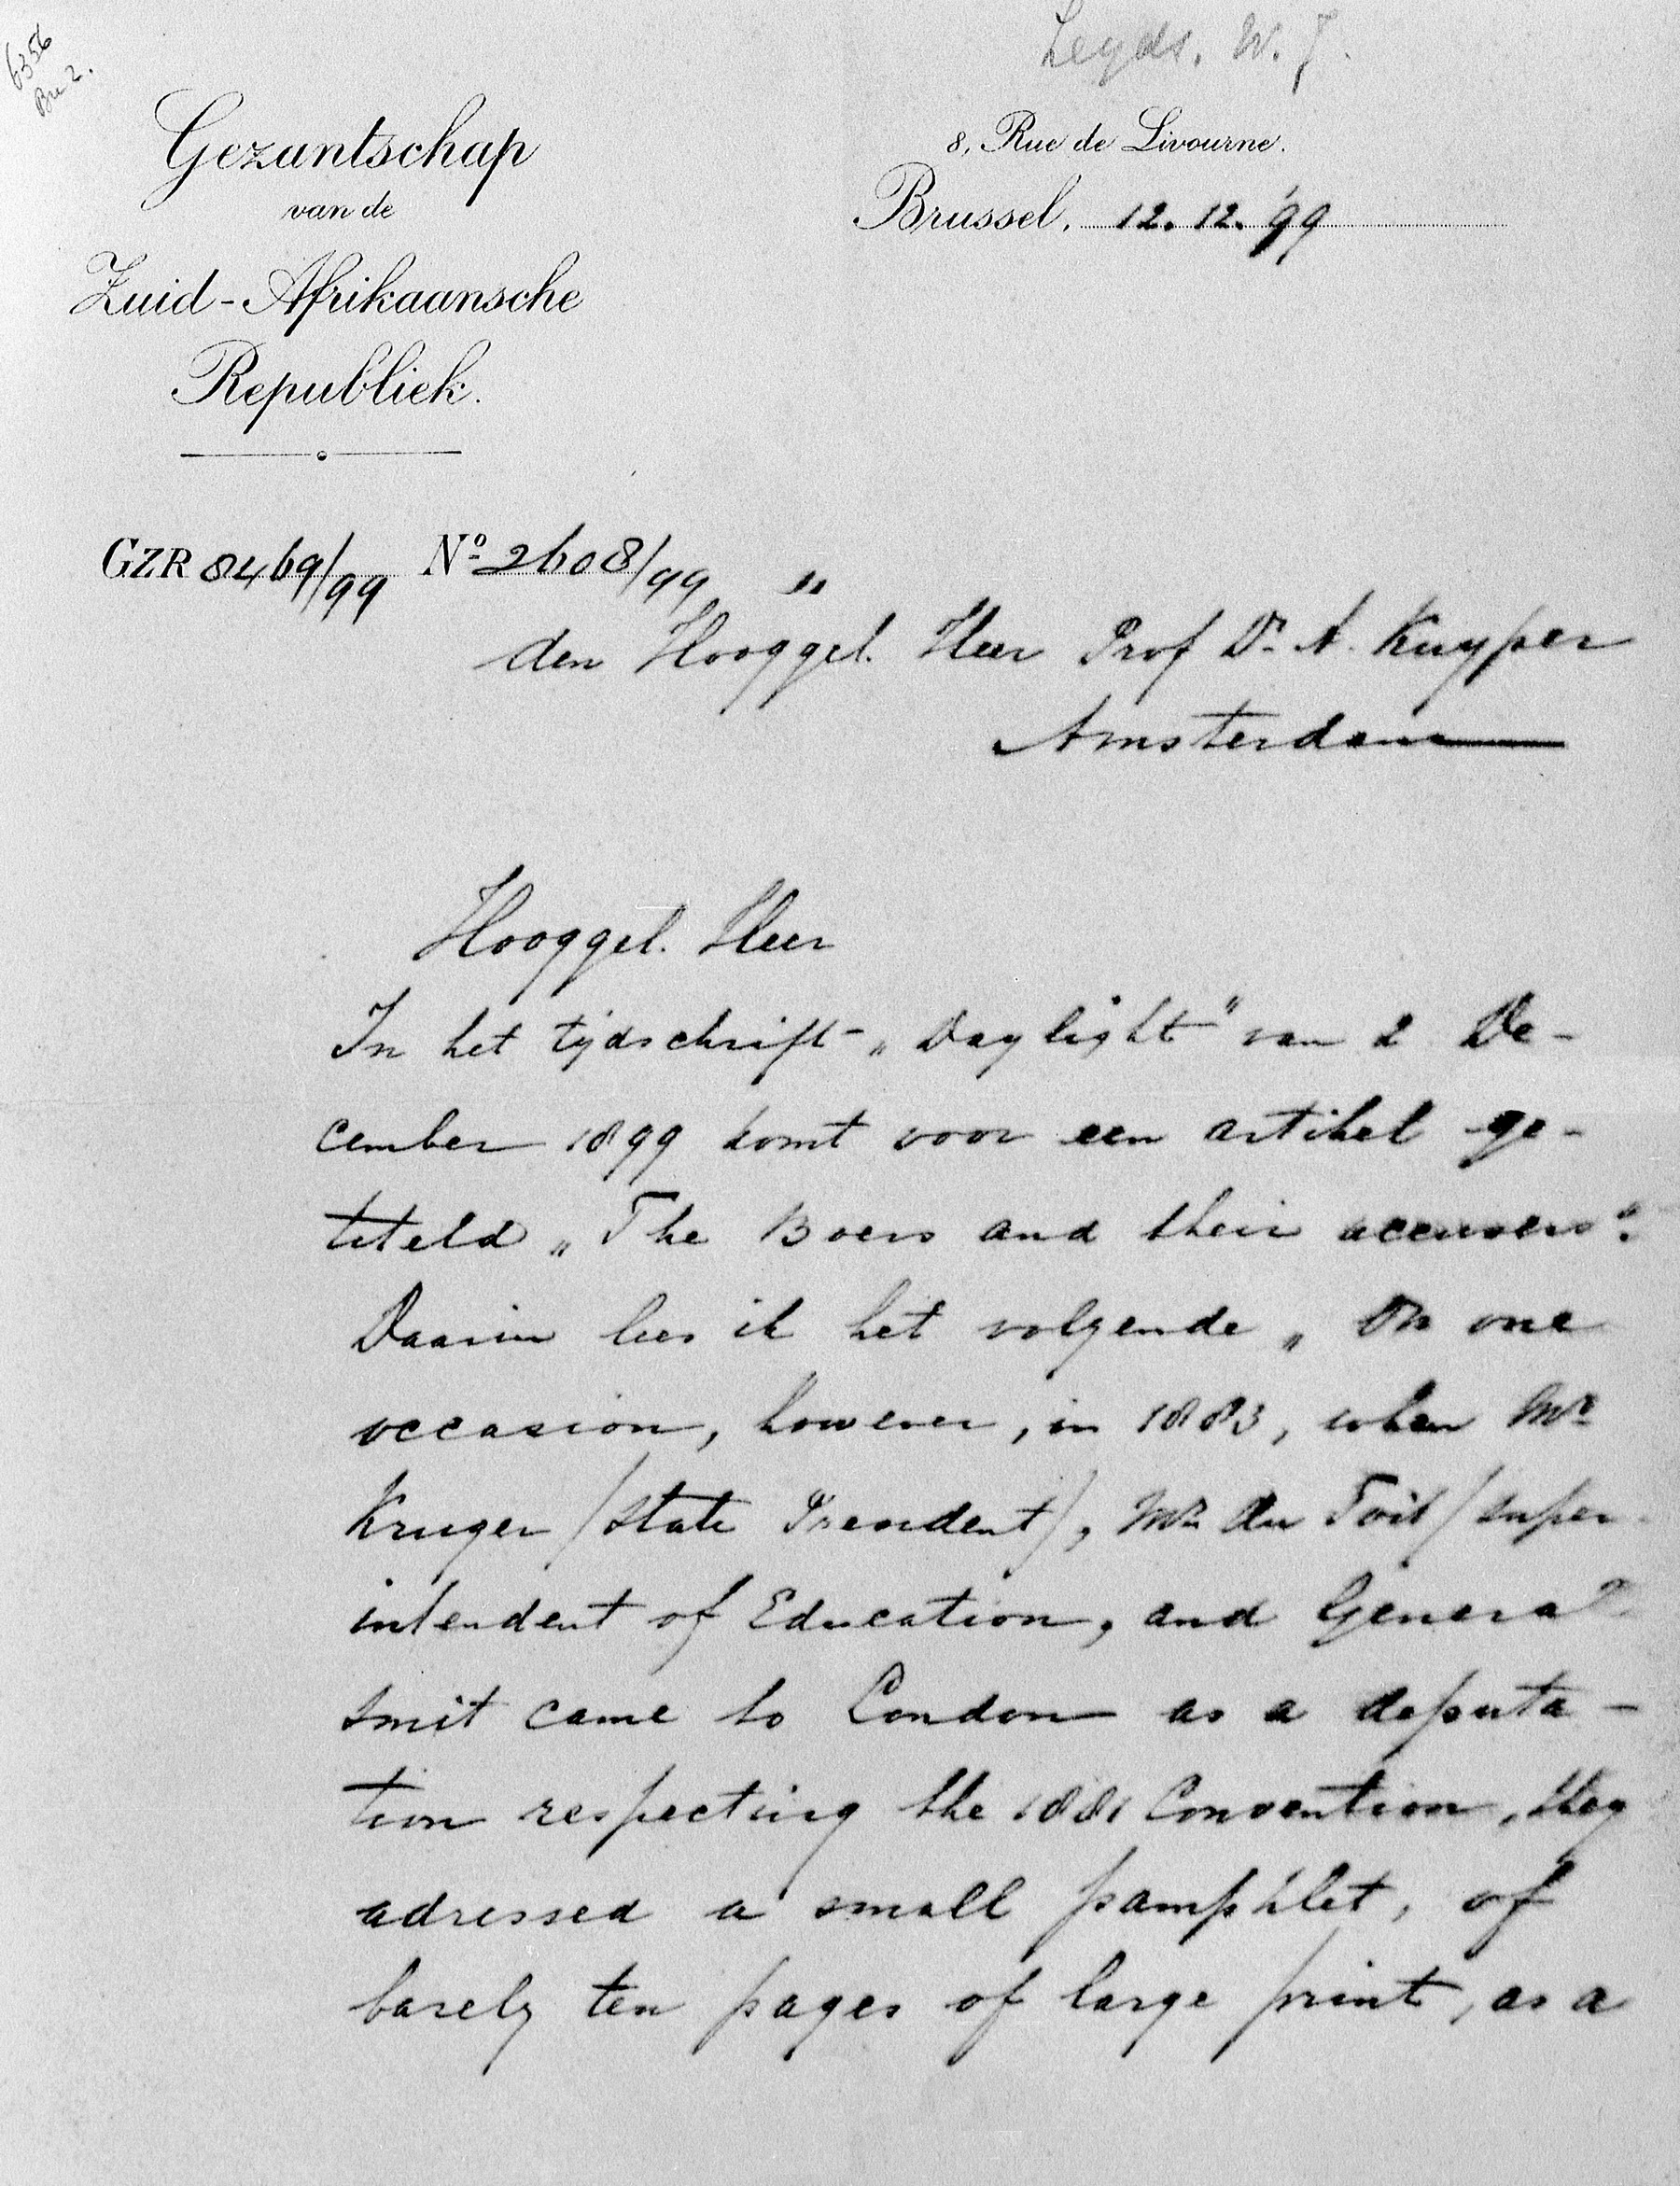 6356
Bre 2.
Leyds. W. J.
Gezantschap
van de
Zuid-Afrikaansche
Republiek.
8, Rue de Livourne.
Brussel, 12. 12. '99
GZR 8469/99 Nº 2608/99 "
den Hooggel. Heer Prof Dr. A. Kuyper
Amsterdam
Hooggel. Heer
In het tijdschrift „Daylight" van 2 De-
cember 1899 komt voor een artikel ge-
titeld „The Boers and their accusers".
Daarin lees ik het volgende „On one
occasion, however, in 1883, when Mr
Kruger /State President/, Mr du Toit /Super-
intendent of Education, and General
Smit came to London as a deputa-
tion respecting the 1881 Convention, they
adressed a small pamphlet, of
barely ten pages of large print, as a